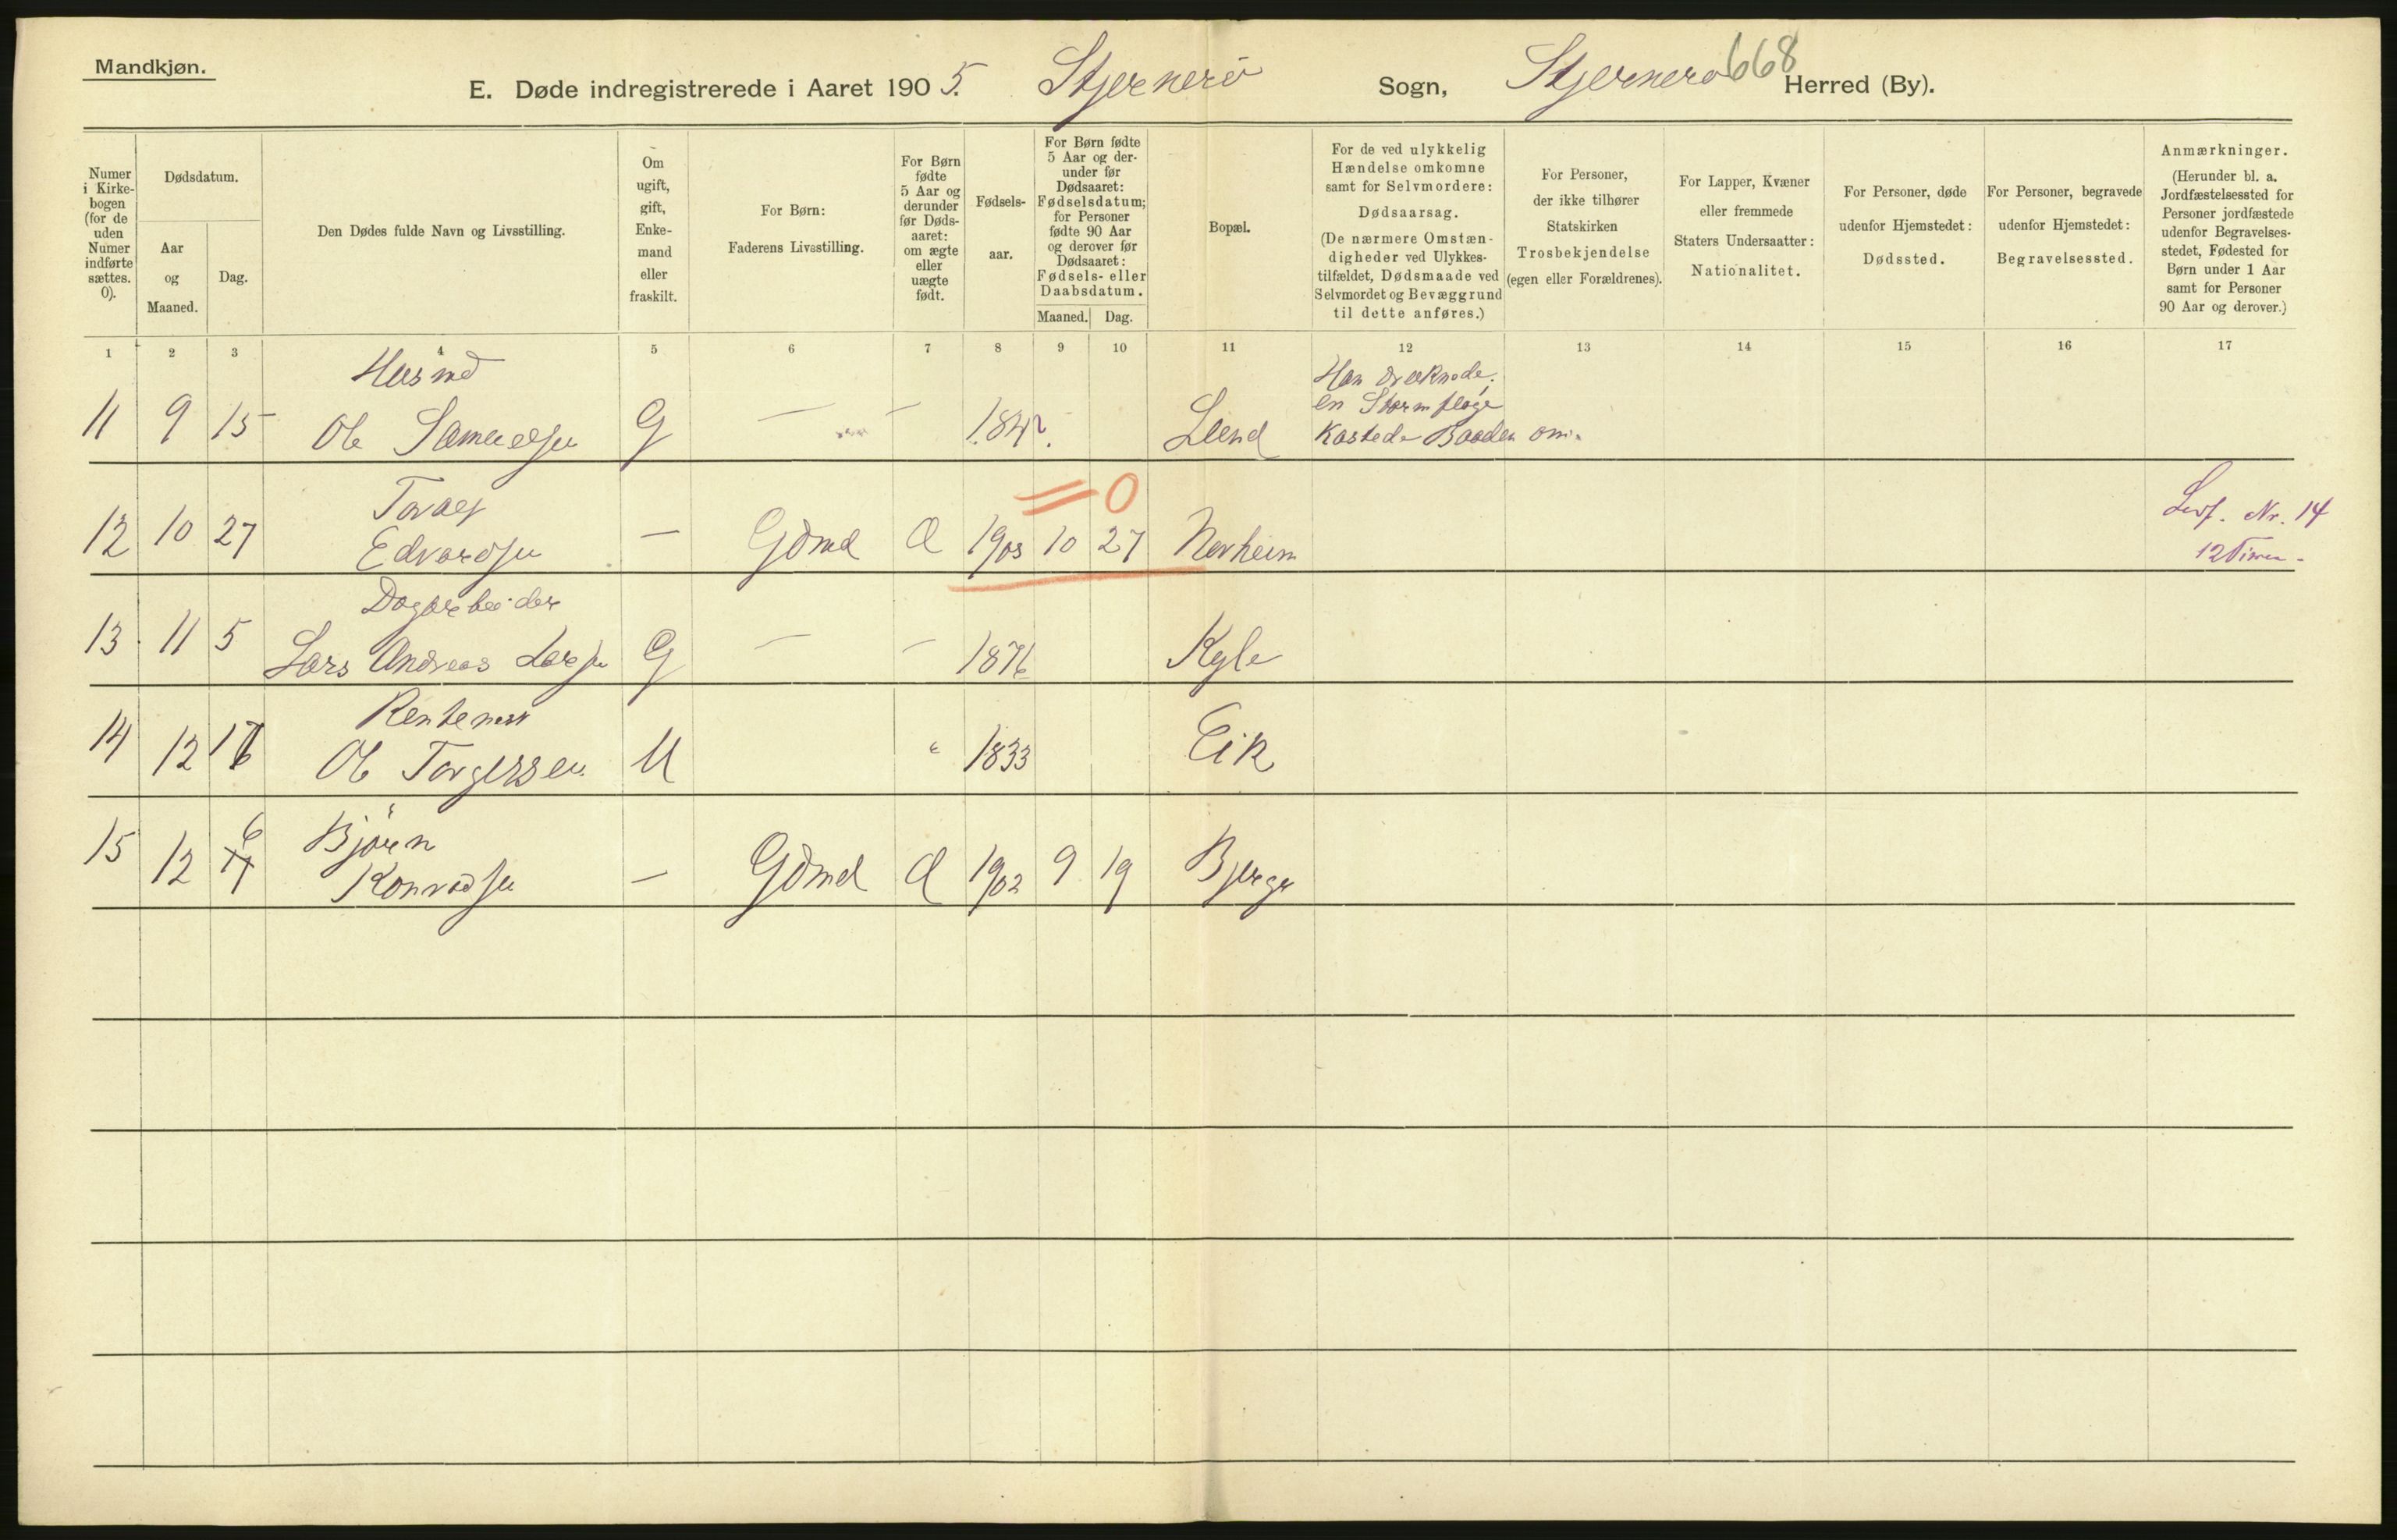 Mandkjøn.
E. Døde indregistrerede i Aaret 1905. Stjernerö Sogn, Stjernerö Herred (By).
668
Numer i Kirkebogen (for de uden Numer indførte sættes. 0).
Dødsdatum.
Aar og Maaned.
Dag.
Den Dødes fulde Navn og Livsstilling.
Om ugift, gift, Enkemand eller fraskilt.
For Børn: Faderens Livsstilling.
For Børn fødte 5 Aar og derunder før Dødsaaret: om ægte eller uægte født.
Fødselsaar.
For Børn fødte 5 Aar og derunder før Dødsaaret: Fødselsdatum; for Personer fødte 90 Aar og derover før Dødsaaret: Fødsels- eller Daabsdatum.
Maaned. Dag.
Bopæl.
For de ved ulykkelig Hændelse omkomne samt for Selvmordere: Dødsaarsag. (De nærmere Omstændigheder ved Ulykkestilfældet, Dødsmaade ved Selvmordet og Bevæggrund til dette anføres.)
For Personer, der ikke tilhører Statskirken Trosbekjendelse (egen eller Forældrenes).
For Lapper, Kvæner eller fremmede Staters Undersaatter: Nationalitet.
For Personer, døde udenfor Hjemstedet: Dødssted.
For Personer, begravede udenfor Hjemstedet: Begravelsessted.
Anmærkninger. (Herunder bl. a. Jordfæstelsessted for Personer jordfæstede udenfor Begravelsesstedet, Fødested for Børn under 1 Aar samt for Personer 90 Aar og derover.)
1 2 3 4 5 6 7 8 9 10 11 12 13 14 15 16 17
Husmd
Han druknode;
en Stormfloge
11 9 15 Ole Samuelsen G — — 1842. Lund Kastede Baaden om.
= 0
Levf. Nr. 14
12 10 27 Edvardsen — Gdmd Æ 1905 10 27 Norheim 12 Timer.
Dagarbeider
13 11 5 Lars Andreas Larsen G — — 1876 Kyle
14 12 Ole Torgersen U " 1833 Eik
6
Björn
15 12 17 Konradsen — Gdmd Æ 1902 9 19 Bjerge